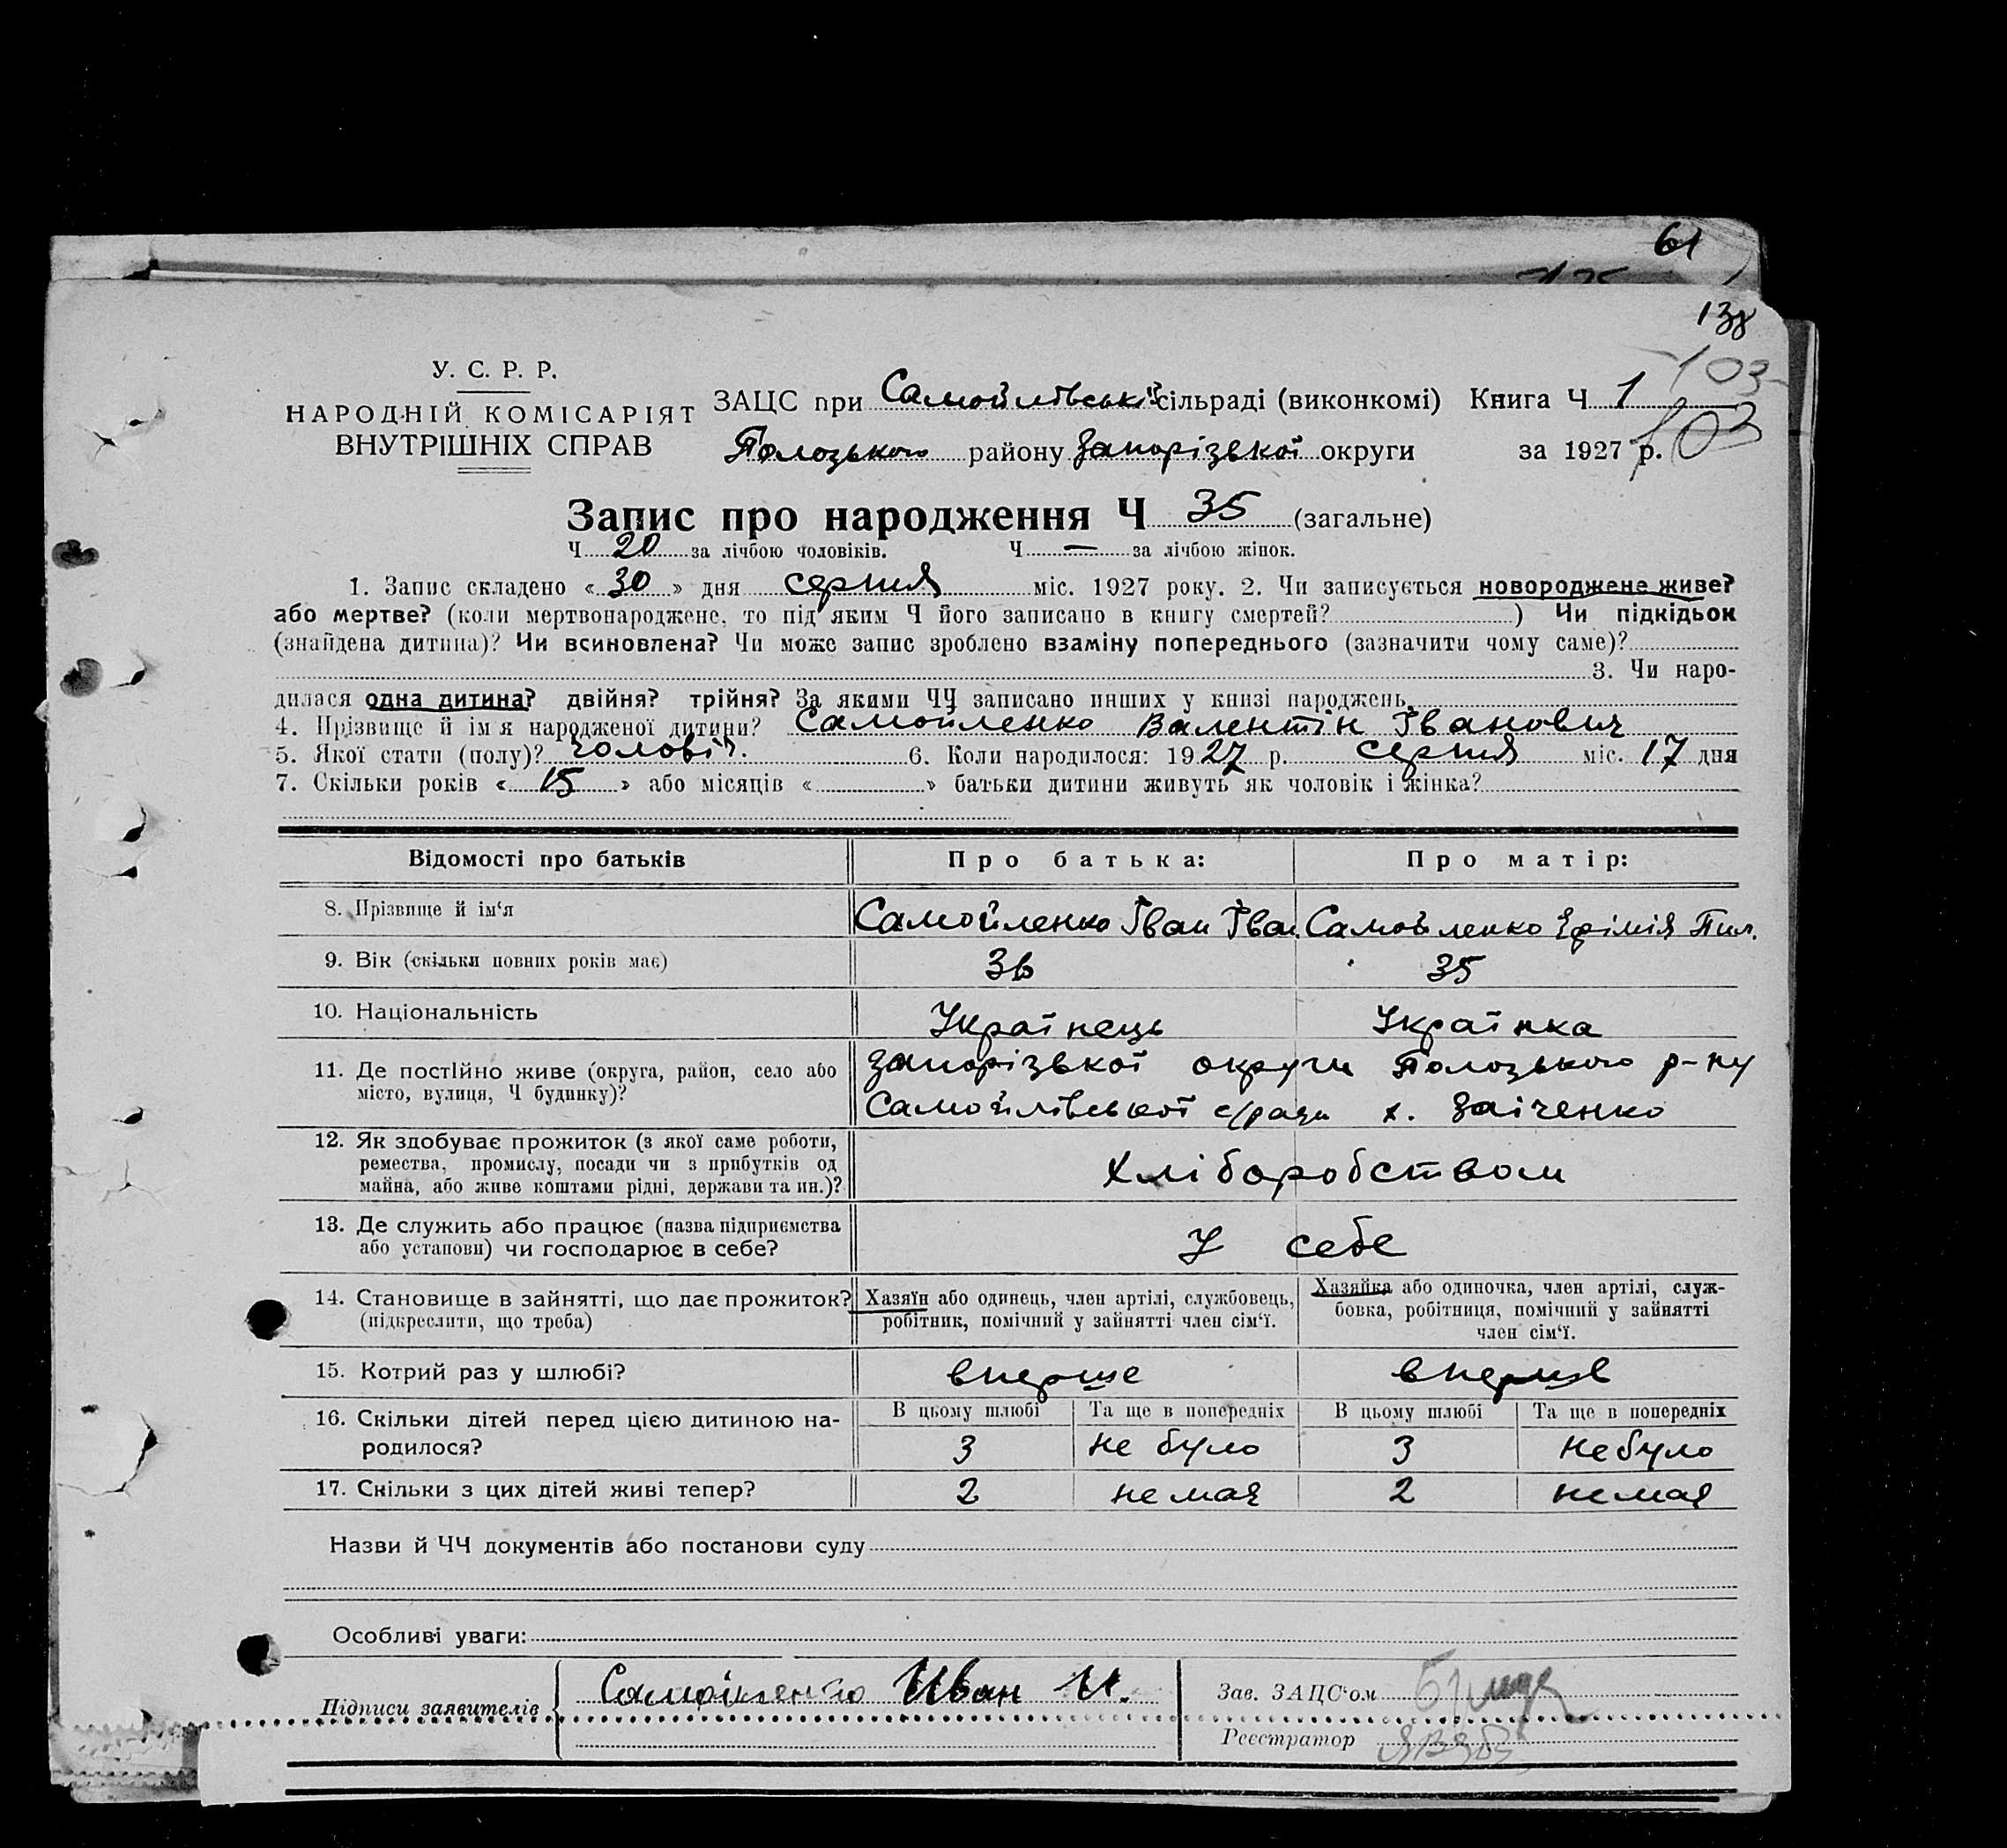 61
138
103
У. С. Р. Р.
НАРОДНІЙ КОМІСАРІЯТ
ВНУТРІШНІХ СПРАВ
ЗАЦС при Самойлівській сільраді (виконкомі) Книга Ч 1
103
Пологського району Запорізької округи за 1927 р.
Запис про народження Ч 35 (загальне)
Ч 20 за лічбою чоловіків. Ч — за лічбою жінок.
1. Запис складено «30» дня серпня міс. 1927 року. 2. Чи записується новороджене живе?
або мертве? (коли мертвонароджене, то під яким Ч його записано в книгу смертей? ) Чи підкідьок
(знайдена дитина)? Чи всиновлена? Чи може запис зроблено взаміну попереднього (зазначити чому саме)?
3. Чи наро-
дилася одна дитина? двійня? трійня? За якими ЧЧ записано инших у книзі народжень,
4. Прізвище й ім я народженої дитини? Самойленко Валентін Іванович
5. Якої стати (полу)? чоловіч. 6. Коли народилося: 1927 р. серпня міс. 17 дня
7. Скільки років «15» або місяців « » батьки дитини живуть як чоловік і жінка?
Відомості про батьків Про батька: Про матір:
8. Прізвище й ім‘я Самойленко Іван Іван. Самойленко Єфімія Пил.
9. Вік (скільки повних років має) 36 35
10. Національність Українець Українка
11. Де постійно живе (округа, район, село або
місто, вулиця, Ч будинку)?
Запорізької округи Полозького р-ну
Самойлівської с/ради х. Заіченко
12. Як здобуває прожиток (з якої саме роботи,
ремества, промислу, посади чи з прибутків од
майна, або живе коштами рідні, держави та ин.)?
Хліборобством
13. Де служить або працює (назва підприємства
або установи) чи господарює в себе?
У себе
14. Становище в зайнятті, що дає прожиток?
(підкреслити, що треба)
Хазяїн або одинець, член артілі, службовець,
робітник, помічний у зайнятті член сім‘ї.
Хазяйка або одиночка, член артілі, служ-
бовка, робітниця, помічний у зайнятті
член сім‘ї.
15. Котрий раз у шлюбі? вперше вперше
16. Скільки дітей перед цією дитиною на-
родилося?
В цьому шлюбі Та ще в попередніх В цьому шлюбі Та ще в попередніх
3 не було 3 не було
17. Скільки з цих дітей живі тепер? 2 немає 2 немає
Назви й ЧЧ документів або постанови суду
Особливі уваги:
Підписи заявителів Самойленко Иван И.
Зав. ЗАЦС‘ом
Реєстратор